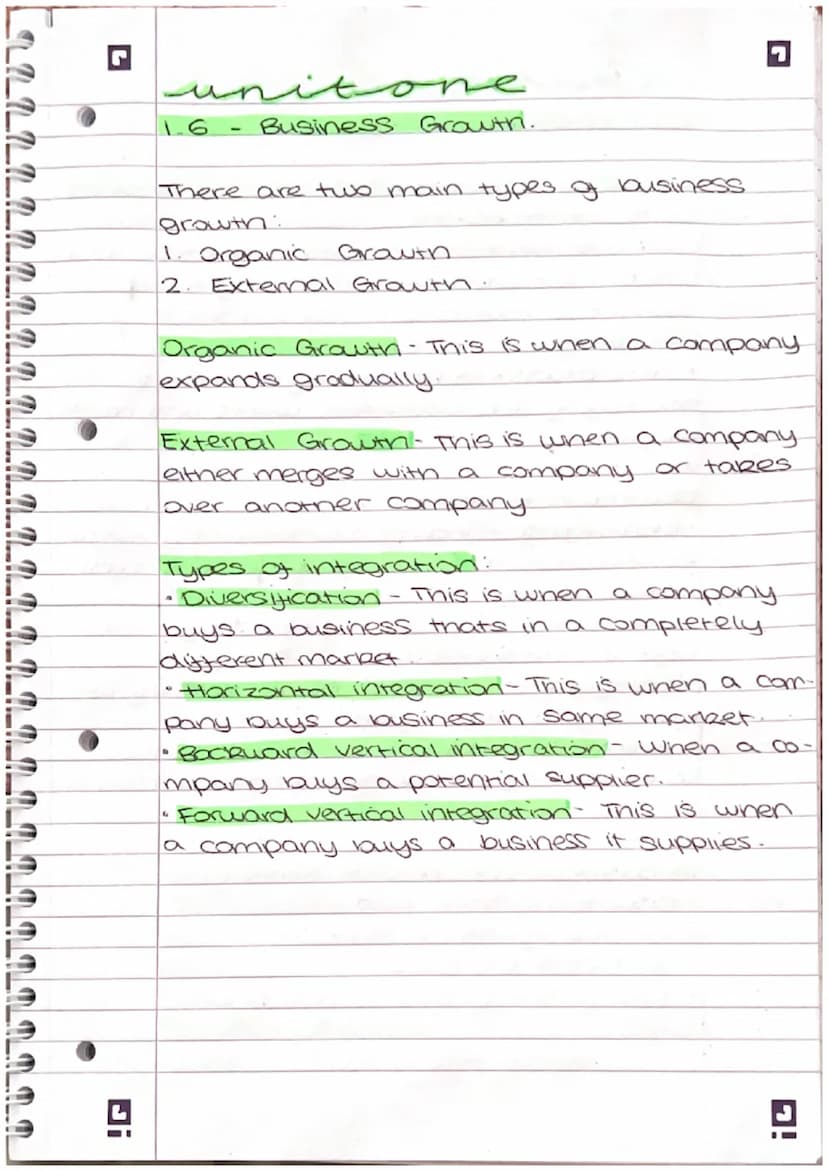 unit one
1.6 - Business Growth.
There are two main types of business
growth:
1. Organic Growth
2. External Growth.
Organic Growth - This is when a company
expands gradually.
External Growth - This is when a company
either merges with a company or takes
over another company
Types of integration:
• Diversification - This is when a company
buys a business thats in a completely
different market.
• Horizontal integration - This is when a com-
pany buys a business in same market.
• Backward vertical integration - When a co-
mpany buys a potential supplier.
• Forward vertical integration - This is when
a company buys a business it supplies.